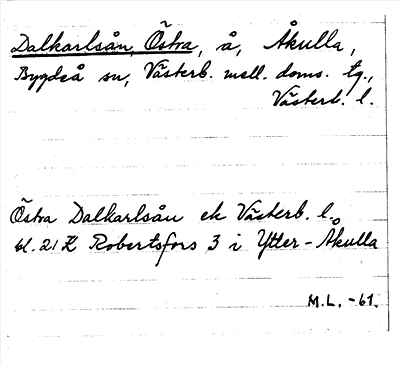 Dalkarlsån, Östra, å, Åkulla,
Bygdeå sn, Västerb. mell. doms. tg.,
Västerb. l.
Östra Dalkarlsån ek Västerb. l.
bl. 21 K Robertsfors 3 i Ytter-Åkulla
M.L. -61.